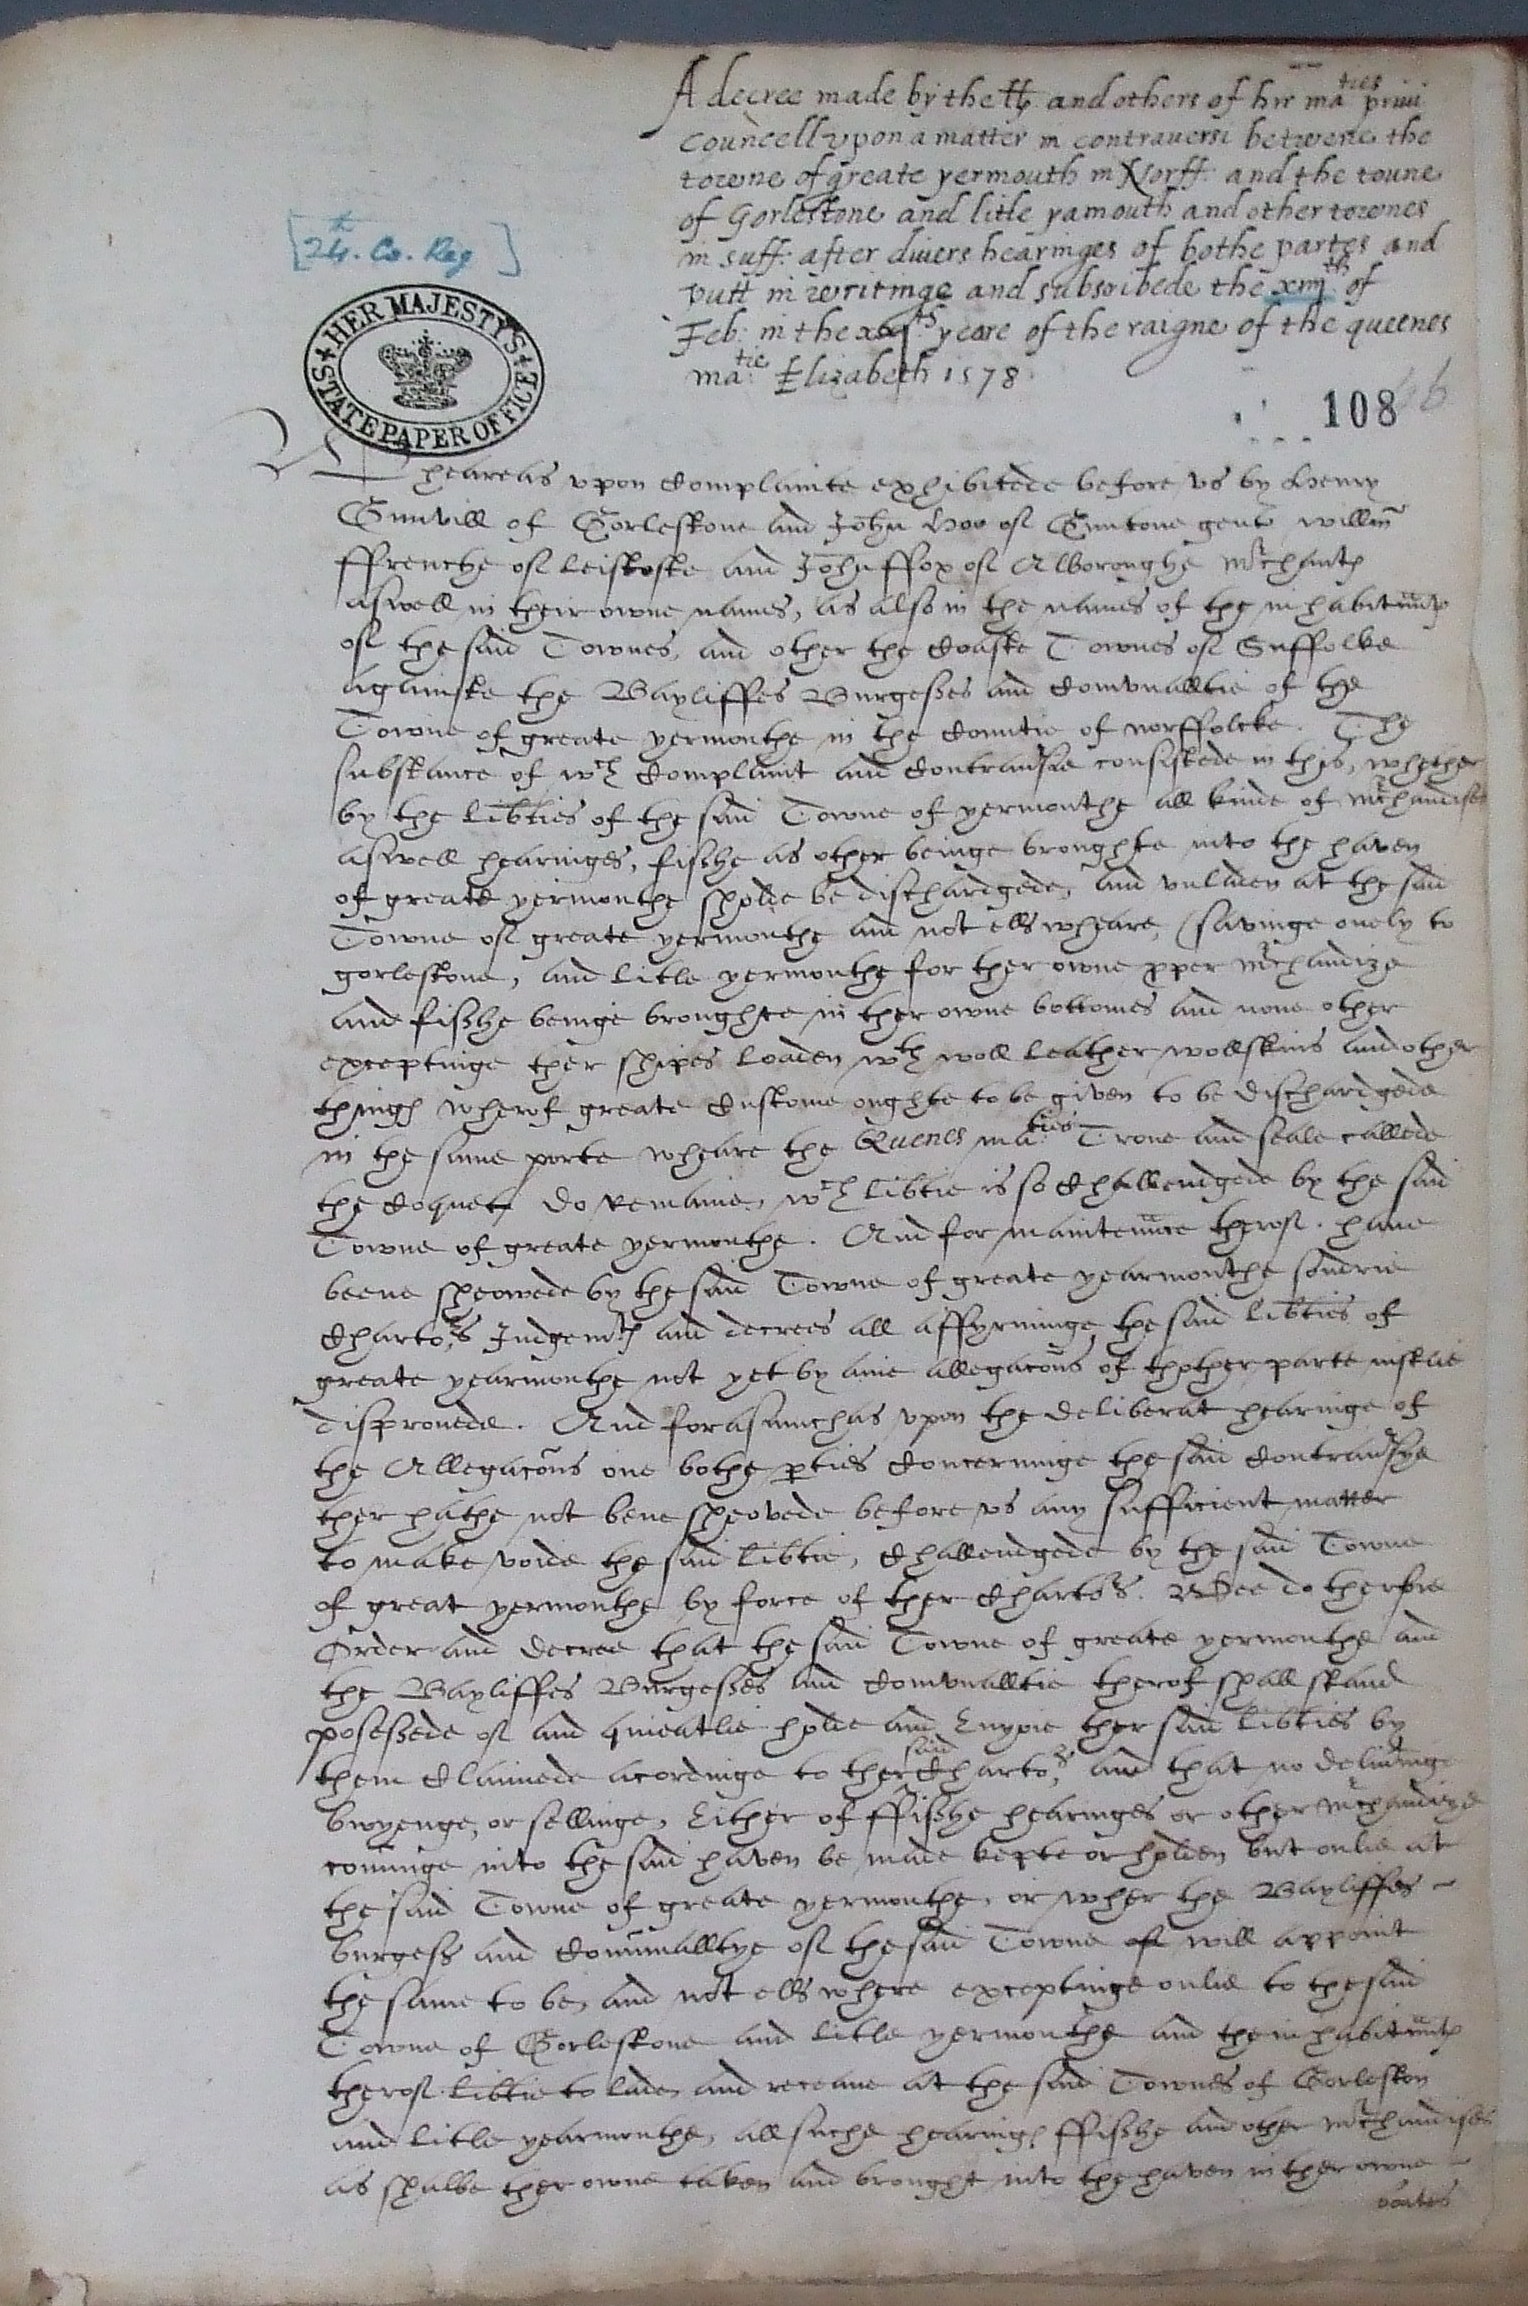 A decree made by the LLs and others of her maties privi
Councell upon a matter in contraversi betwene the
towne of greate yermouth in Norff: and the toune
of Gorlestone and litle yamouth and other townes
in suff: after divers hearinges of bothe partes and
putt in writinge and subscribede the xiiijth of
Feb: in the yeare of the raigne of the queenes
matie: Elizabeth 1578
[24. Co. Reg]
HER MAJESTY'S STATE PAPER OFFICE
108
Wheareas vpon Complainte exhibitede before vs by Henry
Gunvill of Gorlestone and John Hoo of Guntone gent willm
ffrenche of leistofte and John ffox of Alboroughe mrchantes
aswell in their owne names, as also in the names of the inhabitauntes
of the said Townes, and other the Coaste Townes of Suffolke
againste the Bayliffes Burgesses and Comunalltie of the
Towne of greate yermouthe in the Countie of norffolcke. The
substance of wch Complaint and Contraursie consistede in this, whether
by the libties of the said Towne of yermouthe all kinde of mrchandises
aswell hearinges, fisshe as other beinge broughte into the haven
of greate yermouthe sholde be dischardgede, and vnladen at the said
Towne of greate yermouthe and not ells wheare, (savinge onely to
gorlestone, and litle yermouthe for ther owne pper mrchandize
and fisshe beinge broughte in ther owne bottomes and none other
exceptinge ther shipes loaden wth woll leather wollskins and other
thinges wherof greate Custome oughte to be given to be dischardgede
in the same porte wheare the Quenes maties Trone and seale callede
the Coquet, do remaine, wch libtie is so Challendgede by the said
Towne of greate yermouthe. And for maintenuce therof. haue
beene sheowede by the said Towne of greate yearmouthe sondrie
Chartors Judgemtes and decrees all affyrminge the said libties of
greate yearmouthe not yet by anie allegacons of thother parte iustlie
disprouede. And forasmuchas vpon the deliberat hearinge of
the Allegacons one bothe pties Concerninge the said Contraursye
ther hathe not bene sheovede before vs any sufficient matter
to make voide the said libtie, Challendgede by the said Towne
of great yermouthe by force of ther Chartors. Wee do therfore
Order and decree that the said Towne of greate yermouthe and
the Bayliffes Burgesses and Comunalltie therof shall stand
posessede of and quieatlie holde and Enyoie ther said libties by
them Claimede acordinge to ther said Chartors, and that no deliuringe
bwyenge, or sellinge, Either of ffisshe hearinges or other mrchandize
cominge into the said haven be made kepte or holden but onlie at
the said Towne of greate yermouthe, or wher the Bayliffes
burgess and Comunalltye of the said Towne of will appoint
the same to be, and not ells where exceptinge onlie to the said
Towne of Gorlestone and litle yermouthe and the inhabitauntes
therof libtie to laden and receaue at the said Townes of Gorleston
and litle yearmouthe, all suche hearinges ffisshe and other mrchandises
as shalbe ther owne taken and brought into the haven in ther owne
boates